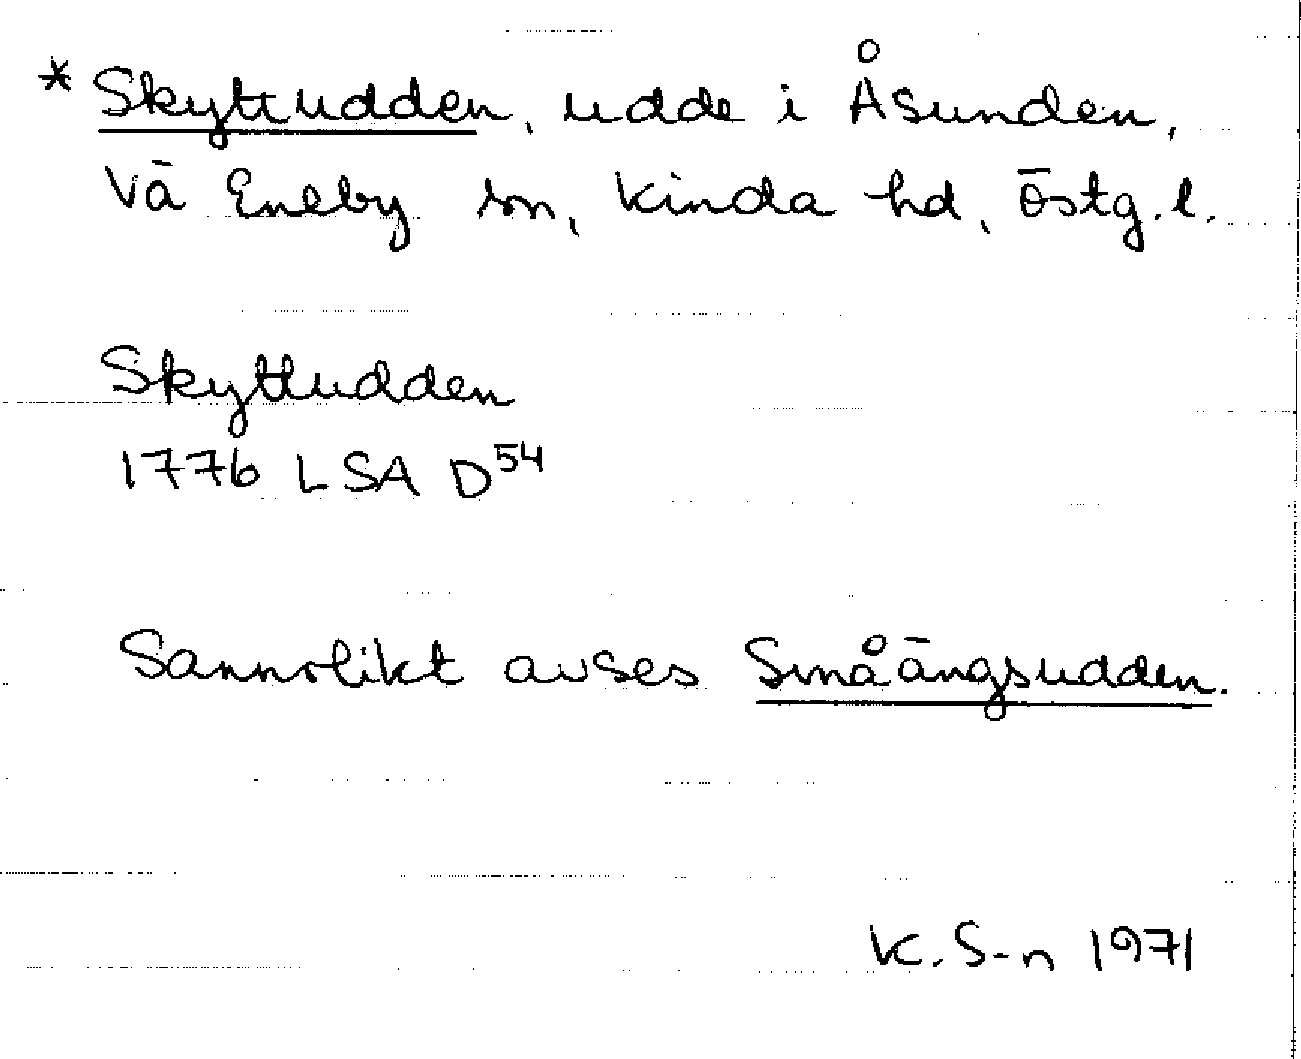 * Skyttudden, udde i Åsunden,
Vä Eneby sn, Kinda hd, Östg. l.
Skyttudden
1776 LSA D54
Sannolikt avses Småängsudden.
K. S-n 1971